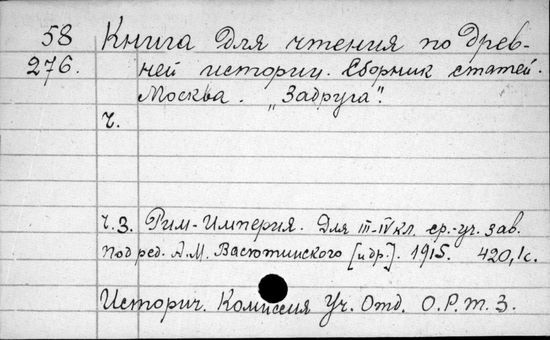 58 Книга для чтения по древ-
276. ней истории. Сборник статей.
Москва. „Задруга".
Ч.
Ч. 3. Рим-Империя. Для III-IV кл. ср.-уч. зав.
Под ред. А.М. Васютинского [и др.]. 1915. 420,1 с.
Историч. Комиссия Уч. Отд. О.Р.Т.З.